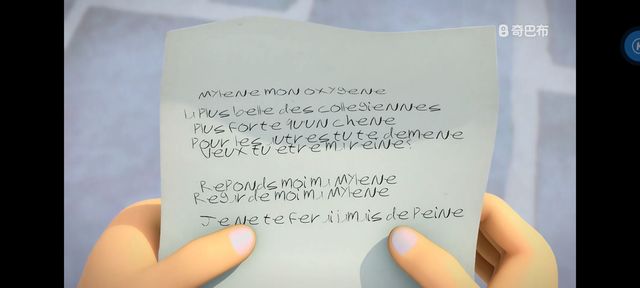 奇巴布
MYLENE MON OXYGENE
La Plus belle des collegiennes
Plus forte quun chene
Pour les autres tu te demene
Veux tu etre ma reine?
Reponds moi ma MYLENE
Regarde moi ma MYLENE
Je ne te ferai jamais de Peine